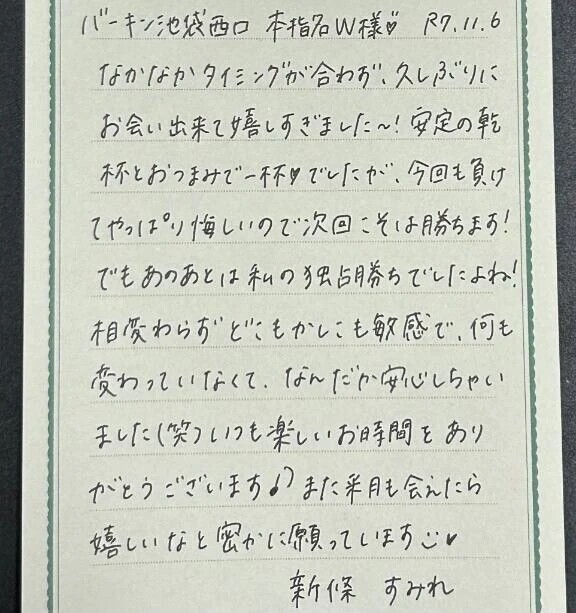 バーキン池袋西口 本指名W様♡ R7.11.6
なかなかタイミングが合わず、久しぶりに
お会い出来て嬉しすぎました〜！安定の乾
杯とおつまみで一杯♥でしたが、今回も負け
てやっぱり悔しいので次回こそは勝ちます！
でもあのあとは私の独占勝ちでしたよね！
相変わらずどこもかしこも敏感で、何も
変わっていなくて、なんだか安心しちゃい
ました(笑)いつも楽しいお時間をあり
がとうございます♪また来月も会えたら
嬉しいなと密かに願っています☺♥
新條 すみれ